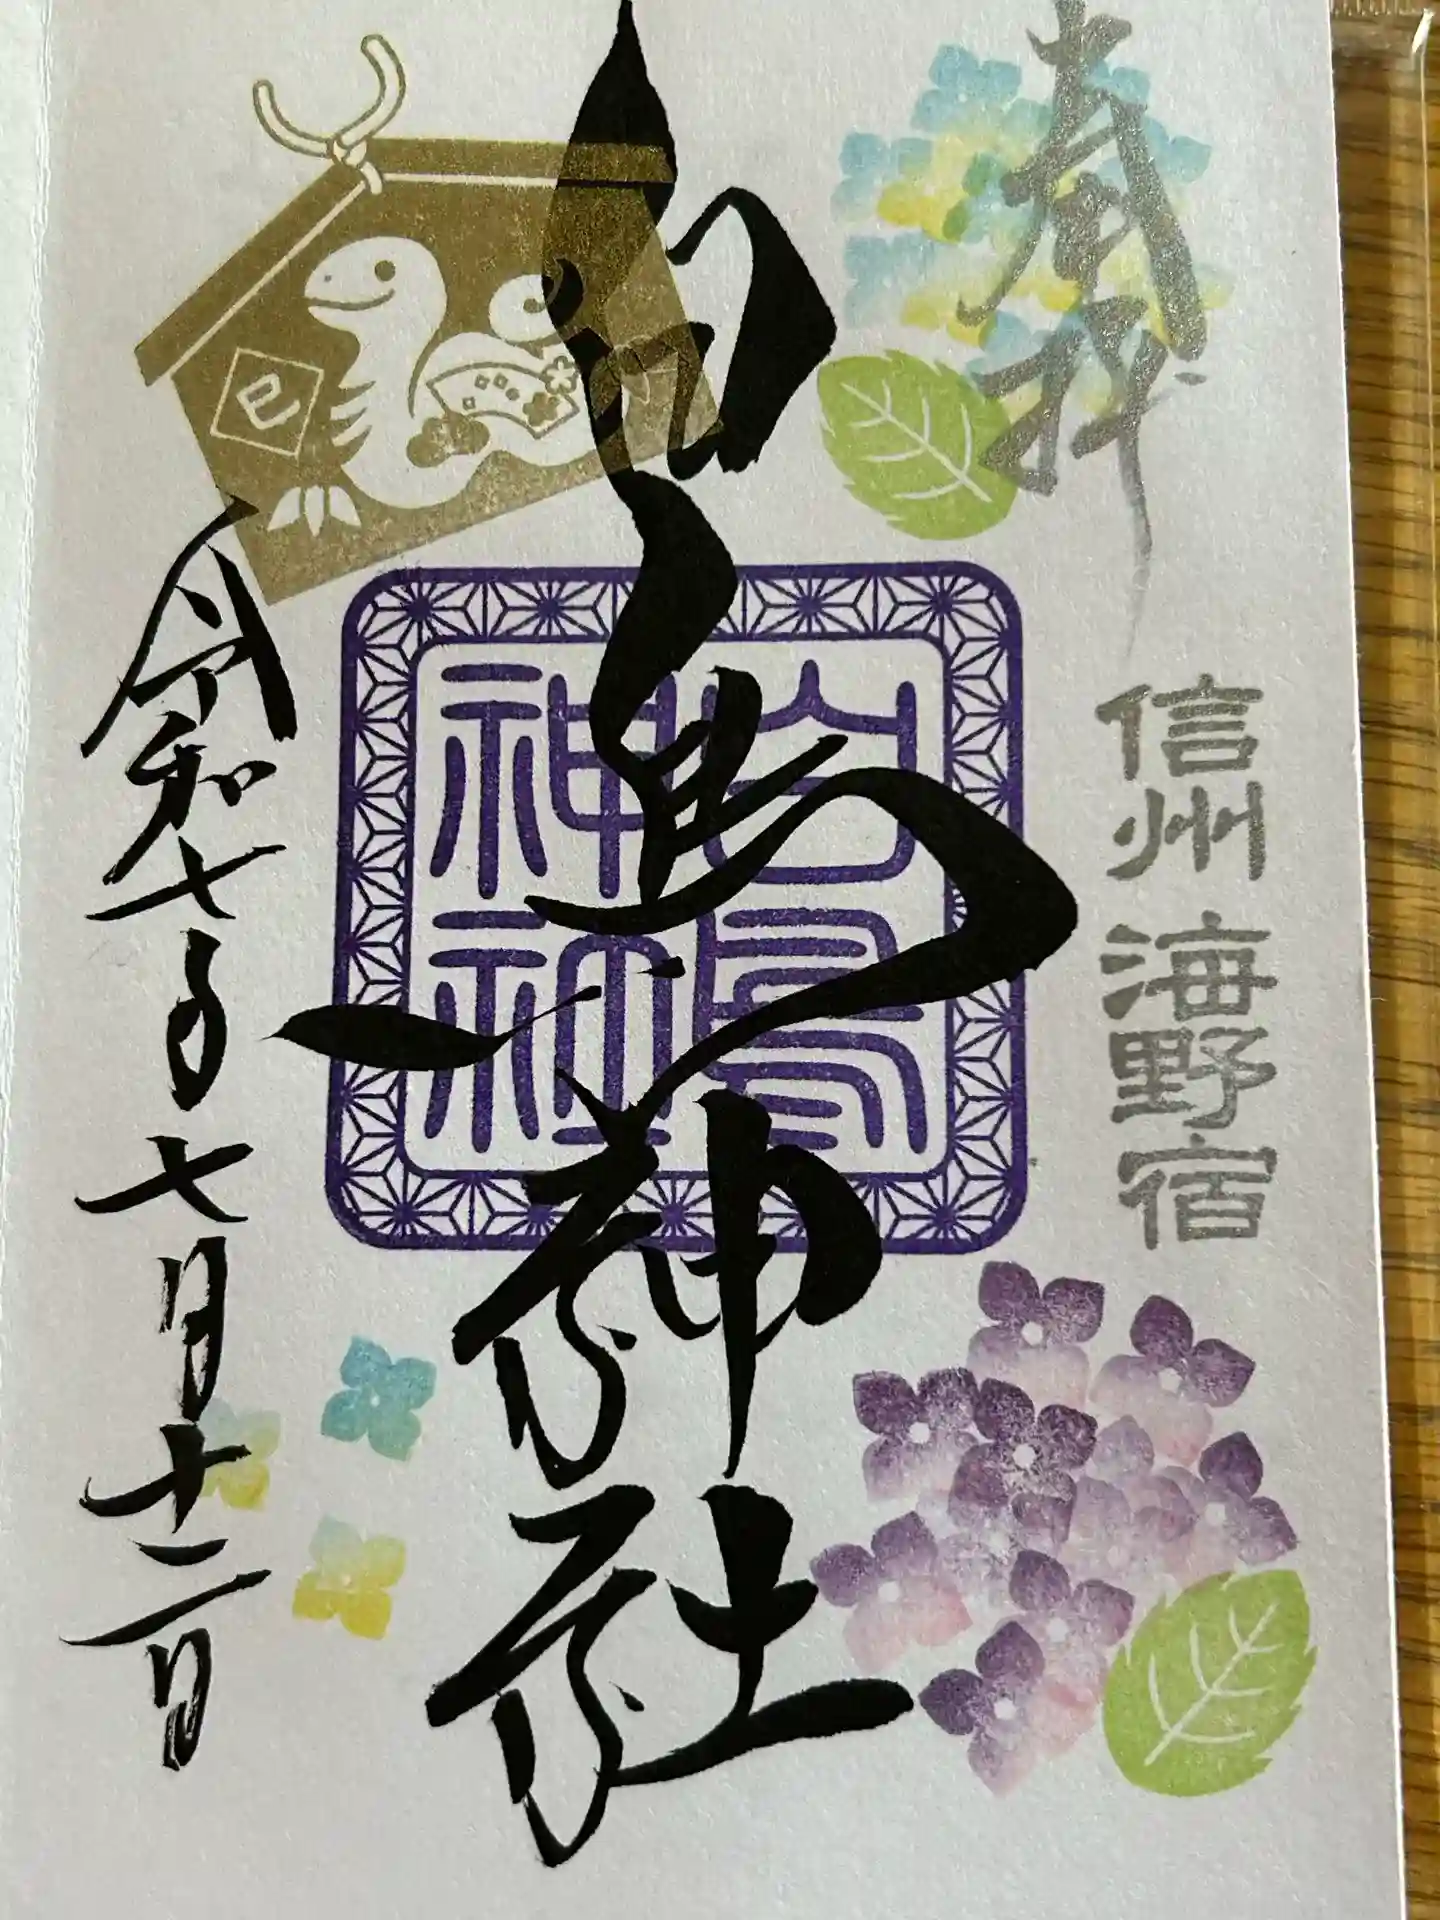 奉拝
信州 海野宿
白鳥神社
白鳥
神社
巳
令和七年七月十二日